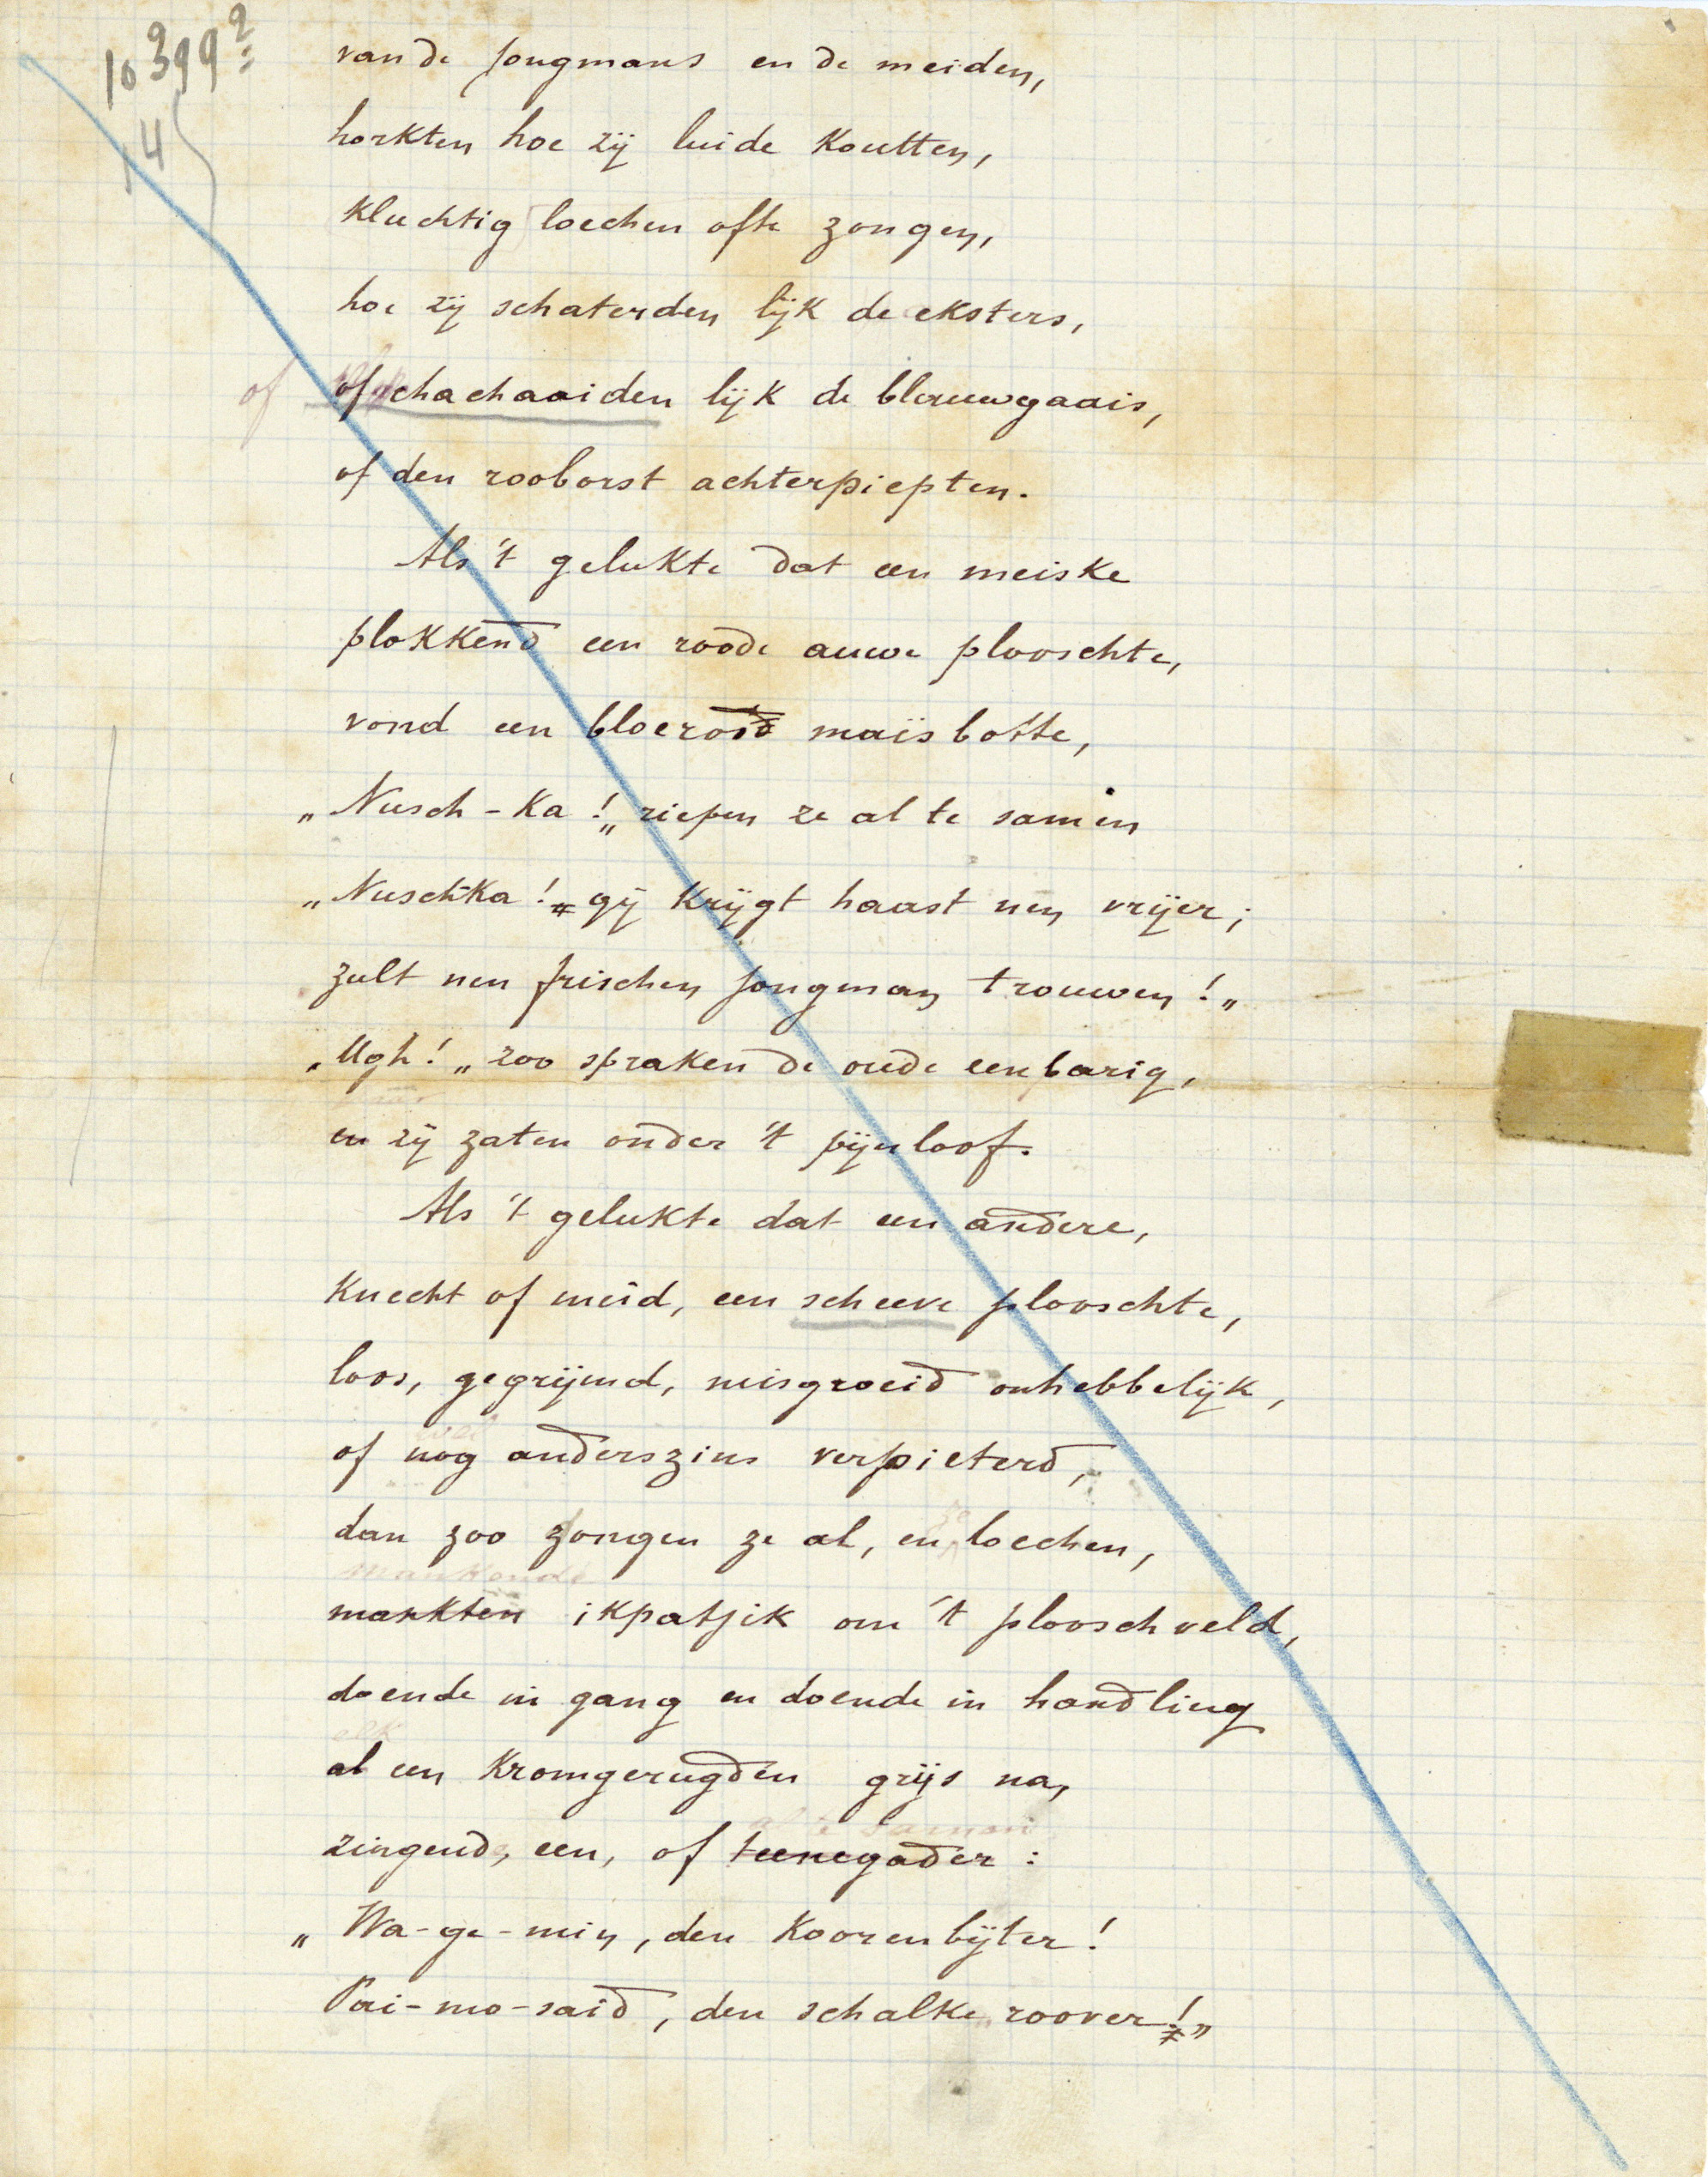 10 399?
14
van de jongmans en de meiden,
horkten hoe zij luide koutten,
kluchtig loechen ofte zongen,
hoe zij schaterden lijk de eksters,
of of chachaaiden lijk de blauwgaais,
of den rooborst achterpiepten.
Als 't gelukte dat een meiske
plokkend een roode auwe plooschte,
vond een bloerood maïsbotte,
„Nusch-Ka!„ riepen ze al te samen
„Nuschka! gij krijgt haast nen vrijer;
zult nen frischen jongman trouwen!„
„Ugh!„ zoo spraken de oude eenbarig,
en zij zaten onder 't pijnloof.
Als 't gelukte dat een andere,
knecht of meid, een scheeve plooschte,
loos, gegrijmd, misgroeid onhebbelijk,
wel
of nog anderszins verpieterd,
ze
dan zoo zongen ze al, en loechen,
mankende
mankten ikpatjik om 't plooschveld,
doende in gang en doende in handling
elk
al een kromgerugden grijs na,
al te samen
zingend, een, of teenegader:
„Wa-ge-min, den koorenbijter!
Pai-mo-said, den schalke roover!„